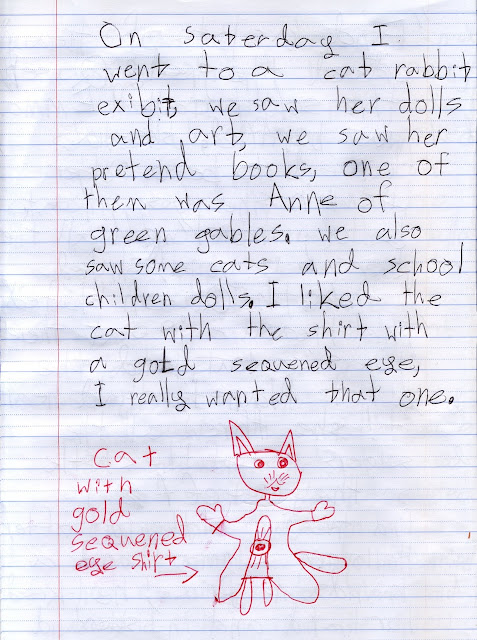 On saterday I
went to a cat rabbit
exibit, we saw her dolls
and art, we saw her
pretend books, one of
then was Anne of
green gables. we also
saw some cats and school
children dolls. I liked the
cat with the shirt with
a gold sequened eye,
I really wanted that one.
cat
with
gold
sequened
eye shirt